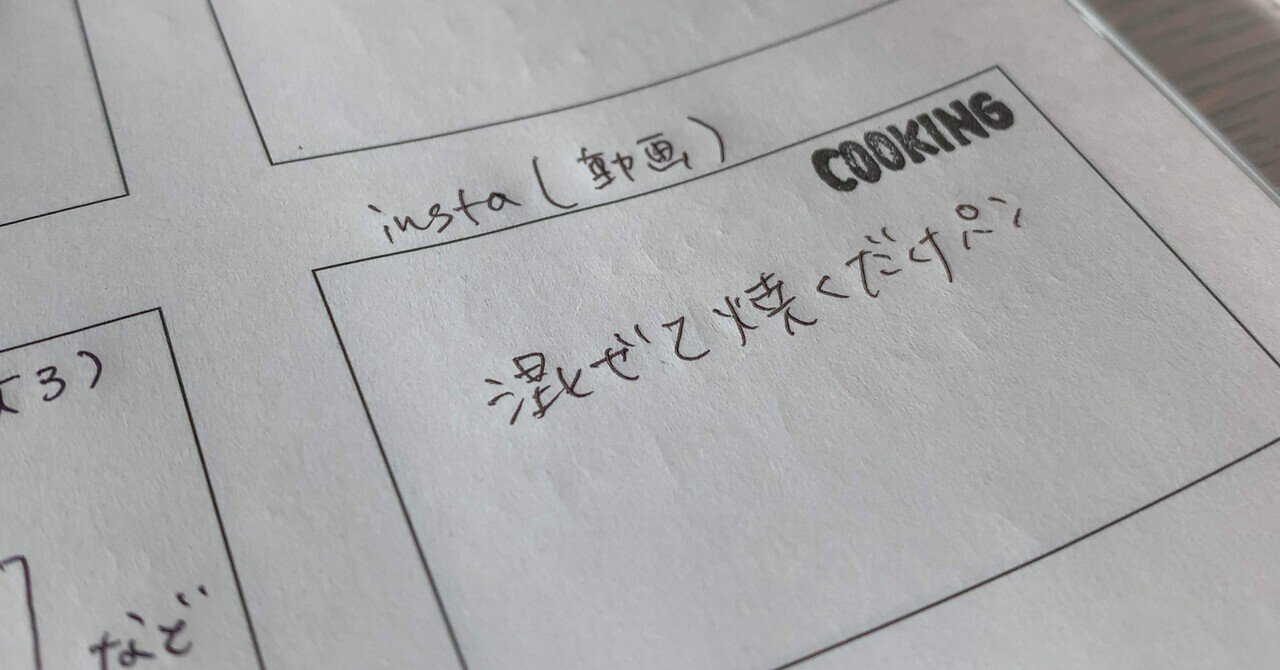 insta(動画)
COOKING
混ぜて焼くだけパン
3)
など